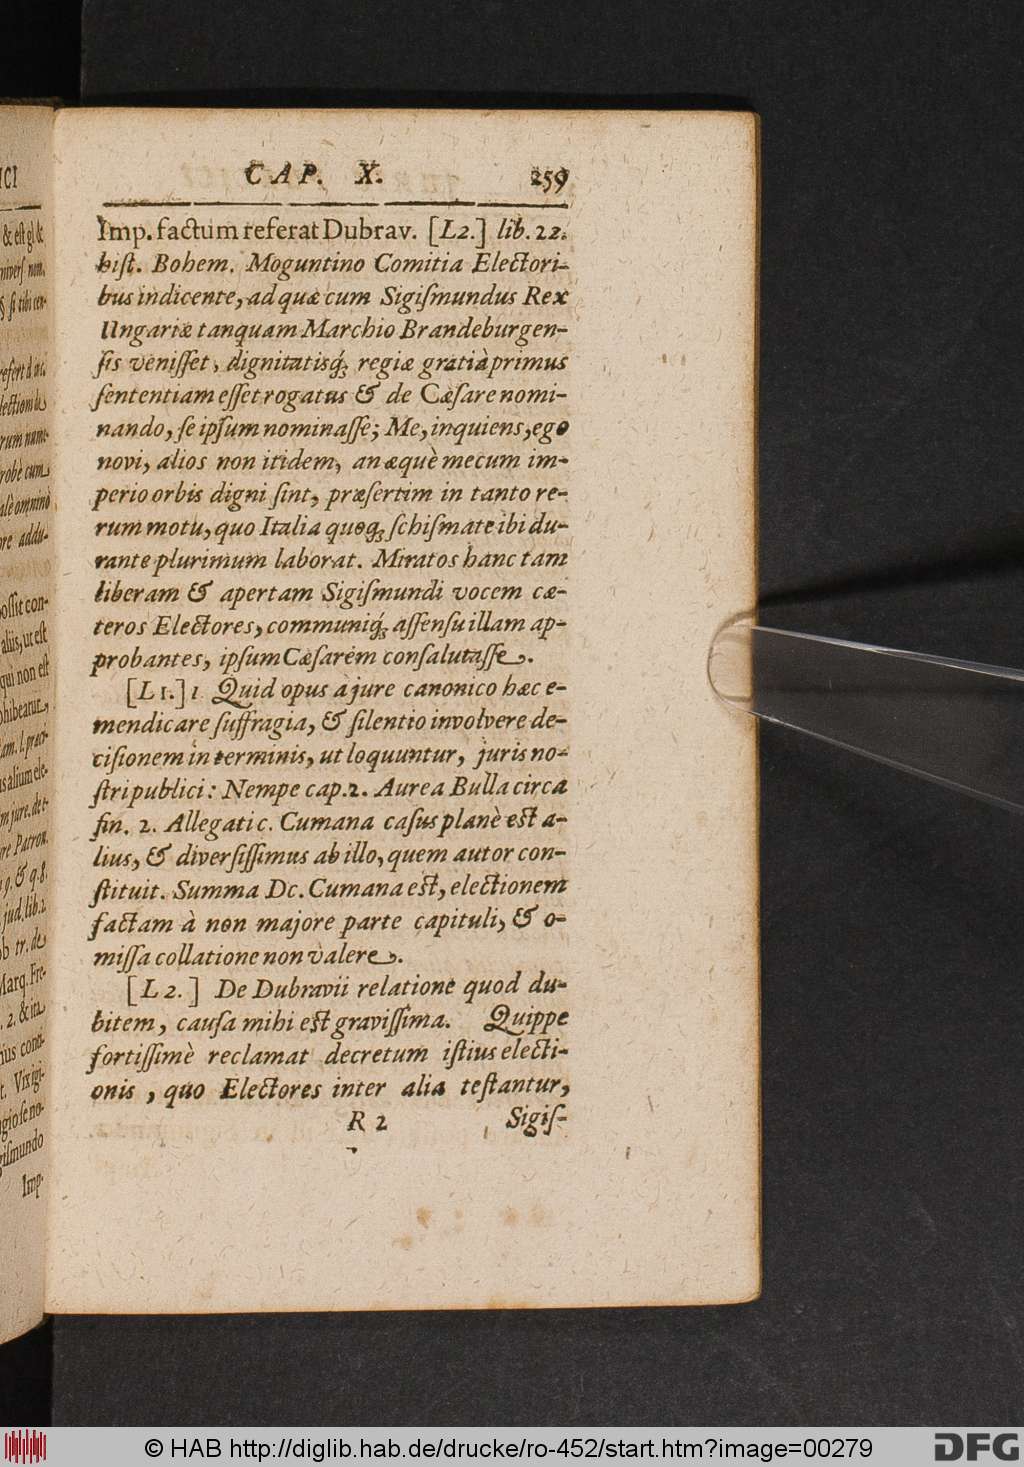 CAP. X. 259
Imp. factum referat Dubrav. [L2.] lib. 22.
hiſt. Bohem. Moguntino Comitia Electori-
bus indicente, ad quæ cum Sigiſmundus Rex
Ungariæ tanquam Marchio Brandeburgen-
ſis veniſſet, dignitatisq́; regiæ gratiâ primus
ſententiam eſſet rogatus & de Cæſare nomi-
nando, ſe ipſum nominaſſe; Me, inquiens, ego
novi, alios non itidem, an æquè mecum im-
perio orbis digni ſint, præſertim in tanto re-
rum motu, quo Italia quoq; ſchiſmate ibi du-
rante plurimum laborat. Miratos hanc tam
liberam & apertam Sigiſmundi vocem cæ-
teros Electores, communiq́; aſſenſu illam ap-
probantes, ipſum Cæſarem conſalutaſſe.
[L1.] 1 Quid opus à jure canonico hæc e-
mendicare ſuffragia, & ſilentio involvere de-
ciſionem in terminis, ut loquuntur, juris no-
ſtri publici: Nempe cap. 2. Aurea Bulla circa
fin. 2. Allegati c. Cumana caſus planè est a-
lius, & diverſiſſimus ab illo, quem autor con-
ſtituit. Summa Dc. Cumana est, electionem
factam à non majore parte capituli, & o-
miſſa collatione non valere.
[L 2. ] De Dubravii relatione quod du-
bitem, cauſa mihi est graviſſima. Quippe
fortiſſimè reclamat decretum iſtius electi-
onis, quo Electores inter alia teſtantur,
R 2 Sigiſ-
ICI
& eſt gl. &
§ ſi tibi cen-
refert d. ac.
lectioni de
rum nume-
robè cum
alè omninò
ore addu-
poſſit con-
aliis, ut eſt
qui non eſt
ohibeatur,
am. l. præci-
us alium ele-
m jure. de e-
are Patron.
9. & q. 8.
jud. lib. 2.
ob tr. de
Marq. Fre-
. 2. & ita
t. Vix igi-
giſmundo
Imp.
© HAB http://diglib.hab.de/drucke/ro-452/start.htm?image=00279
DFG